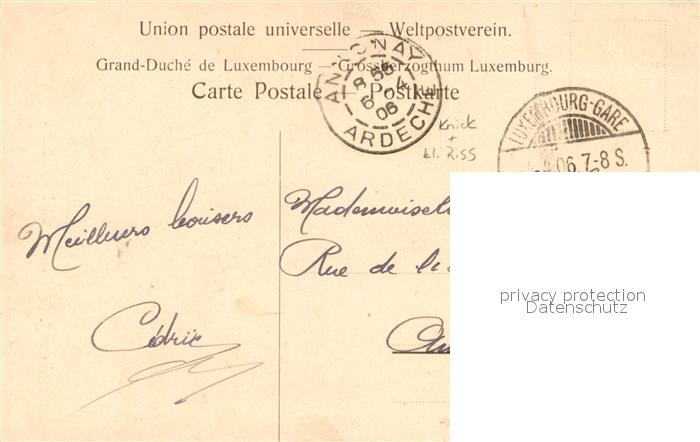 Union postale universelle — Weltpostverein.
Grand-Duché de Luxembourg — Grossherzogthum Luxemburg.
Carte Postale — Postkarte
ANNONAY
ARDECHE
06
Knick
+
kl. Riss
LUXEMBOURG-GARE
4.06.7-8 S.
Meilleurs baisers
Cédric
Mademoisel
Rue de la
privacy protection
Datenschutz